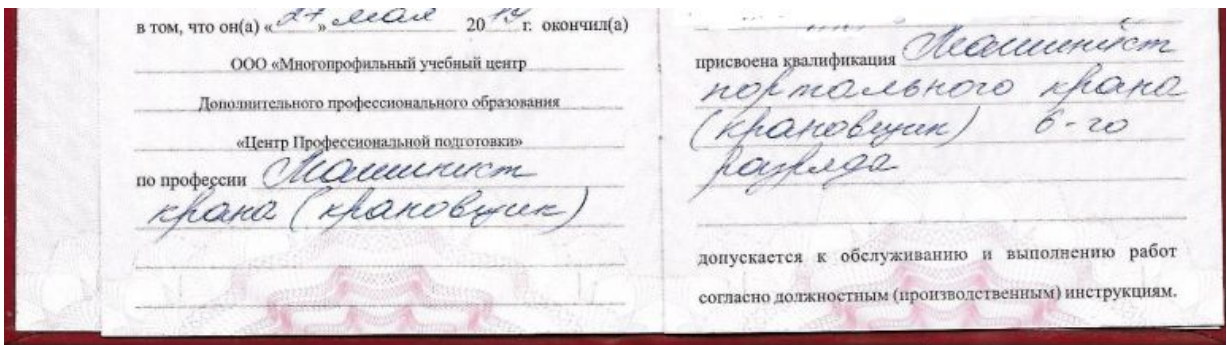 в том, что он(а) «27» мая 20 г. окончил(а)
ООО «Многопрофильный учебный центр
Дополнительного профессионального образования
«Центр Профессиональной подготовки»
по профессии Машинист
крана (крановщик)
присвоена квалификация Машинист
портального крана
(крановщик) 6-го
разряда
допускается к обслуживанию и выполнению работ
согласно должностным (производственным) инструкциям.